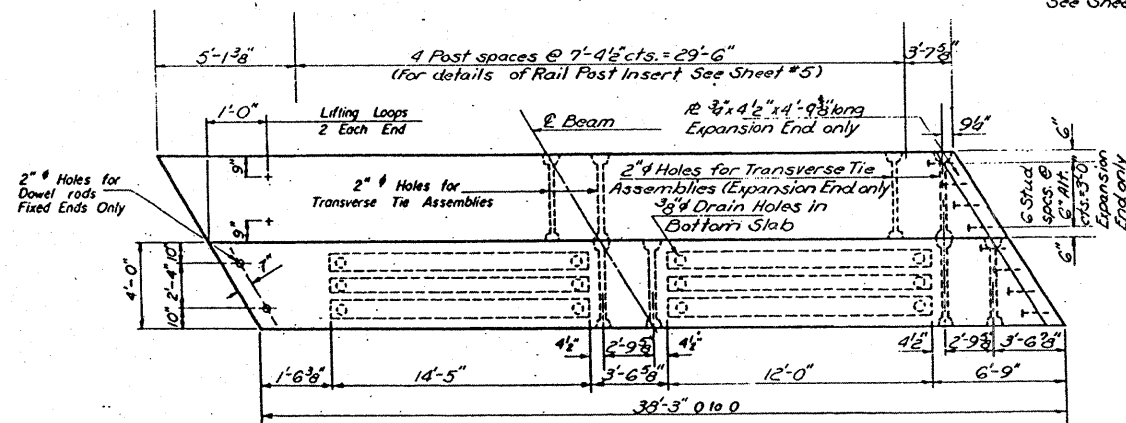 See Shee
5'-1 3/8"
4 Post spaces @ 7'-4 1/2" cts. = 29'-6"
3'-7 5/8"
(For details of Rail Post Insert See Sheet #5)
1'-0"
Lifting Loops
2 Each End
℄ Beam
℞ 3/4" x 4 1/2" x 4'-9 3/8" long
Expansion End only
9 1/4"
6"
9"
9"
2" ϕ Holes for
Dowel rods
Fixed Ends Only
2" ϕ Holes for
Transverse Tie Assemblies
2" ϕ Holes for Transverse Tie
Assemblies (Expansion End only
3/8" ϕ Drain Holes in
Bottom Slab
6 Stud
spcs. @
6" Alt.
cts. = 3'-0"
Expansion
End only
6"
4'-0"
10"
2'-4"
10"
7"
4 1/2"
2'-9 5/8"
4 1/2"
4 1/2"
2'-9 5/8"
3'-6 7/8"
1'-6 3/8"
14'-5"
3'-6 5/8"
12'-0"
6'-9"
38'-3" 0 to 0